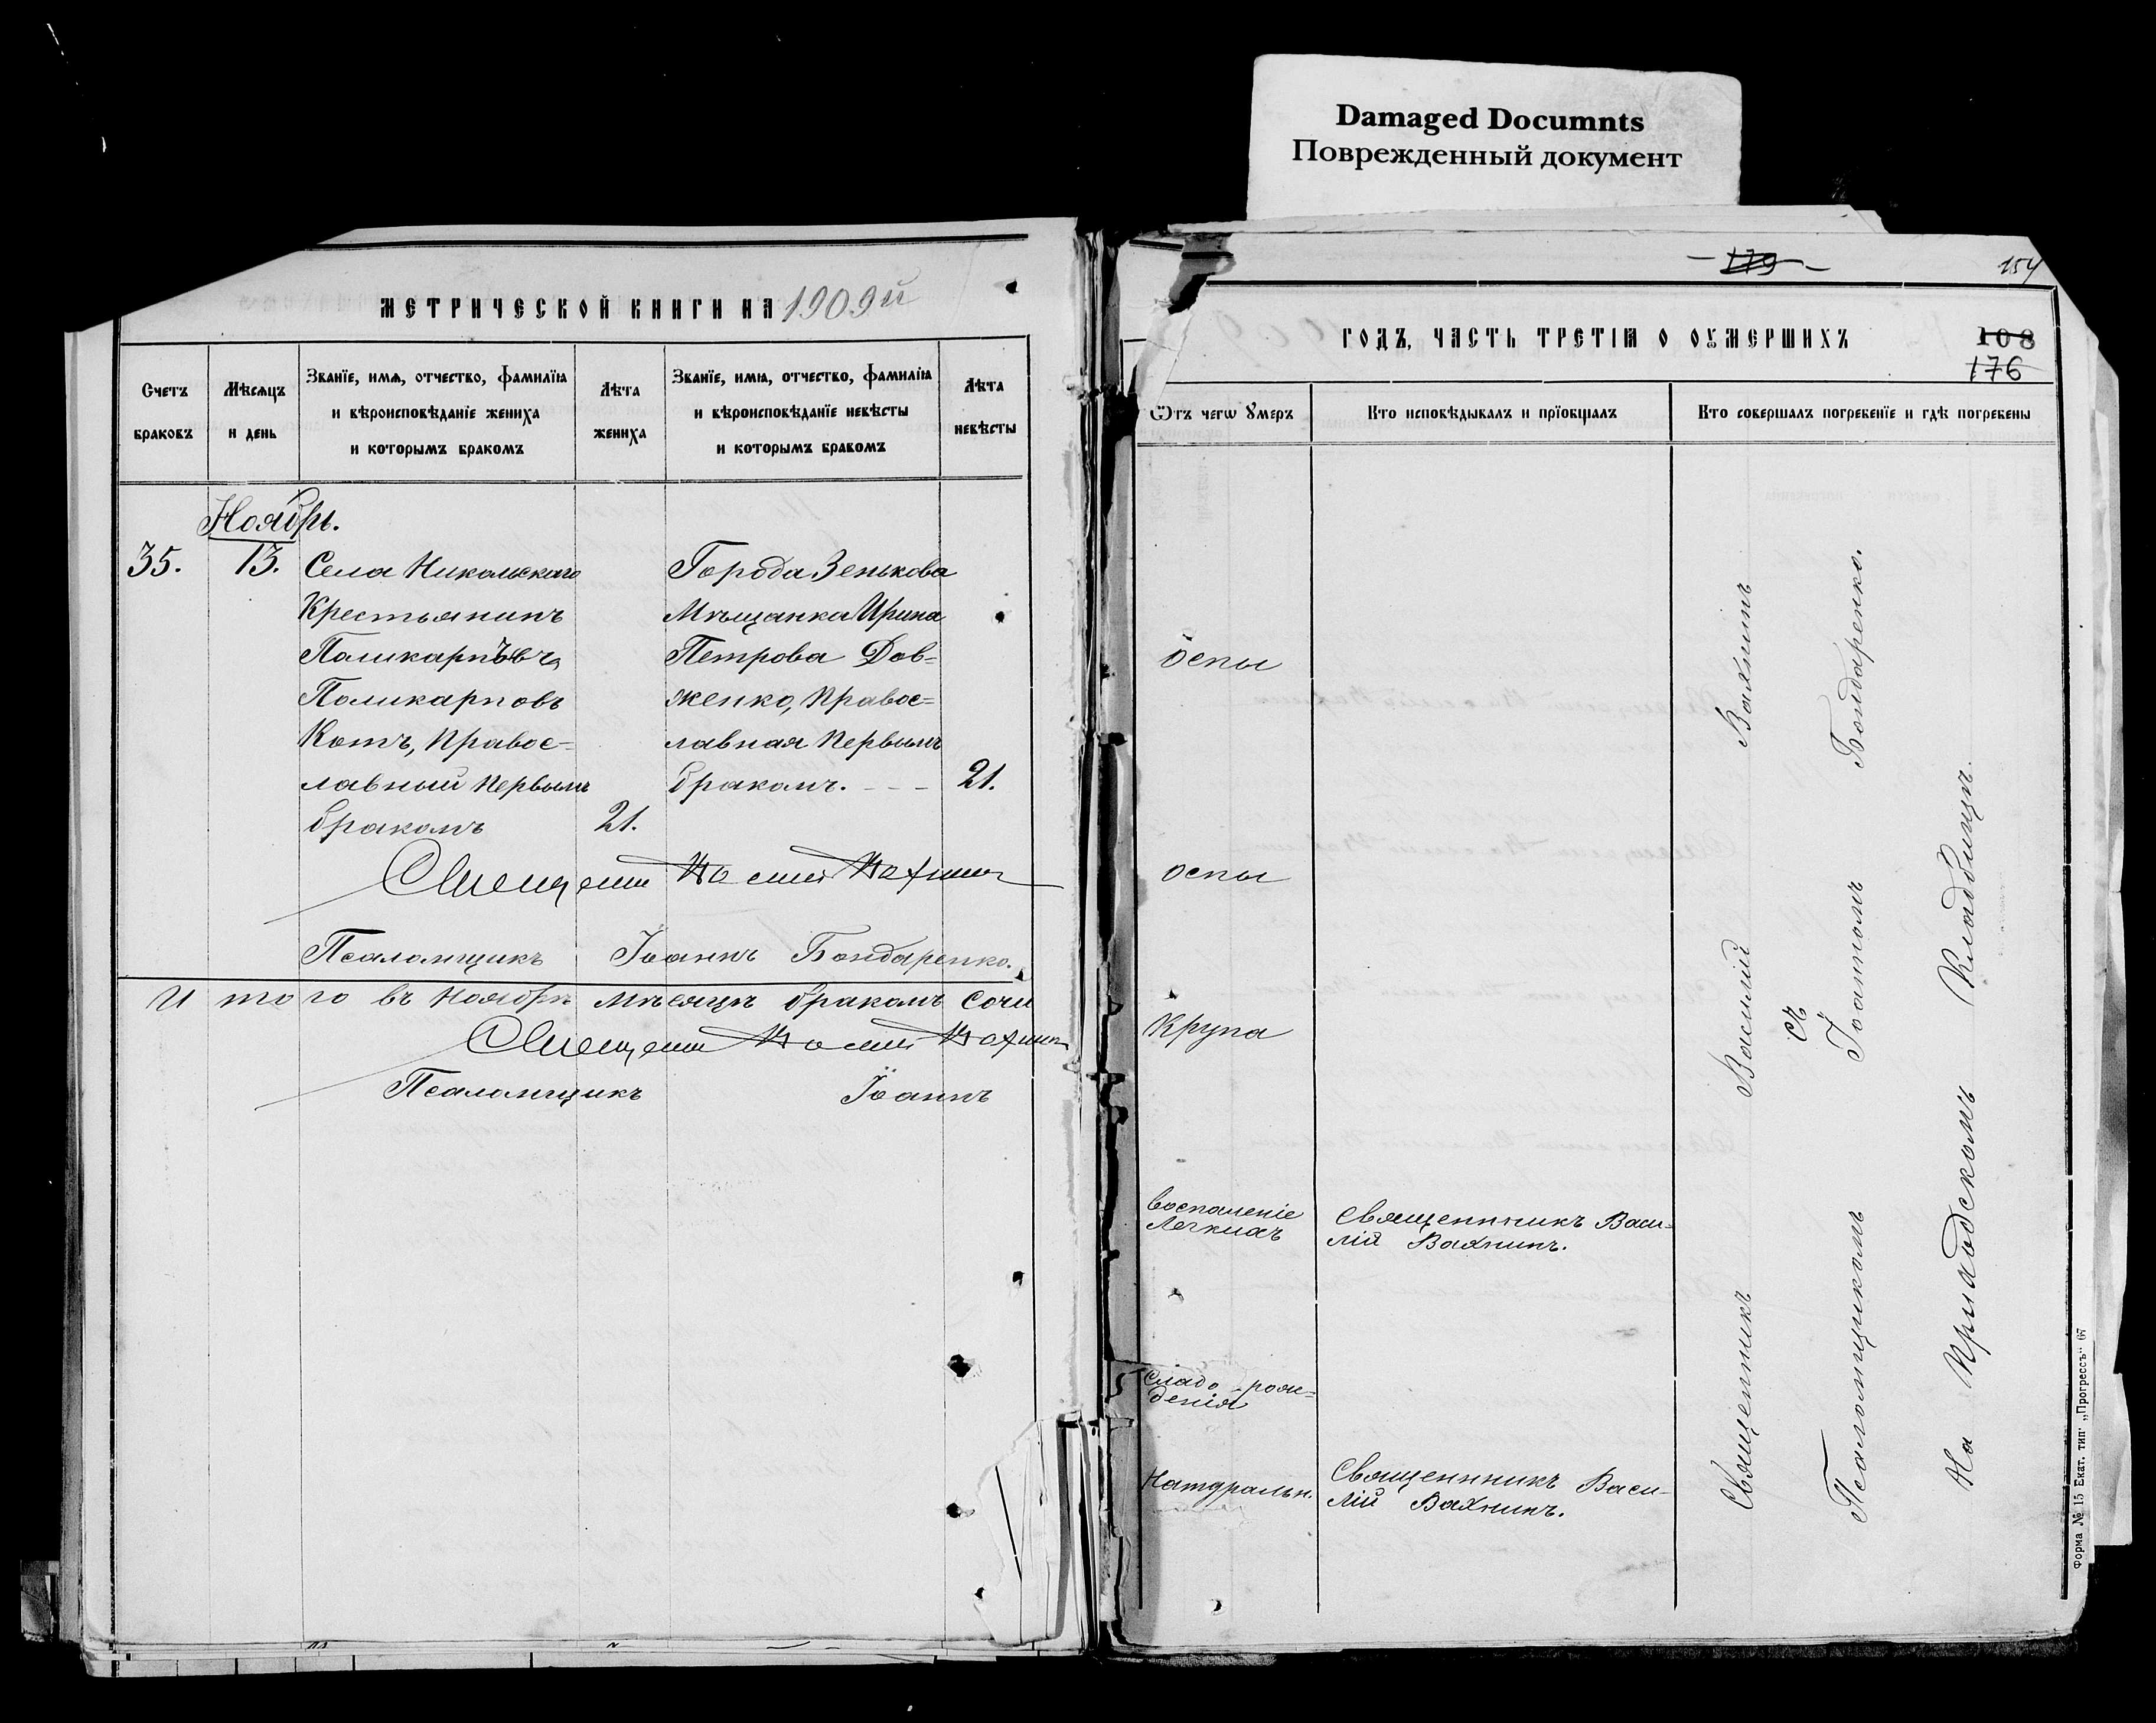 Damaged Documnts
Поврежденный документ
МЕТРИЧЕСКОЙ КНИГИ НА 1909й
Счетъ браковъ
Мѣсяцъ и день
Званїе, имѧ, отчество, фамилїѧ и вѣроисповѣданїе жениха и которымъ бракомъ
Лѣта жениха
Званїе, имѧ, отчество, фамилїѧ и вѣроисповѣданїе невѣсты и которымъ бракомъ
Лѣта невѣсты
Ноябрь.
35. 13.
Села Никольскаго
Крестьянинъ
Поликарпъ
Поликарповъ
Котъ, Правос-
лавный Первымъ
бракомъ 21.
Города Зенькова
Мѣщанка Ирина
Петрова Дов=
женко, Правос=
лавная Первымъ
бракомъ. - - - 21.
Священни Василій Вахнинъ
Псаломщикъ Іоаннъ Бондаренко.
Итого въ Ноябрѣ мѣсяцѣ бракомъ сочи
Священни Василій Вахнинъ
Псаломщикъ Іоаннъ
- 179 -
154
ГОДЪ, ЧАСТЬ ТРЕТІѦ О ОУМЕРШИХЪ
108
176
Ѿтъ чегѡ ꙋмеръ
Кто исповѣдывалъ и прїобщалъ
Кто совершалъ погребенїе и гдѣ погребены
оспы
оспы
Крупа
воспаленіе
легкихъ
Священникъ Васи-
лій Вахнинъ.
Слабо рож-
денія
Натуральн.
Священникъ Васи-
лій Вахнинъ.
Священникъ Василій Вахнинъ
съ
Псаломщикомъ Іоанномъ Бондаренко.
На Приходскомъ Кладбищѣ.
Форма № 15 Екат. тип. „Прогрессъ" 67